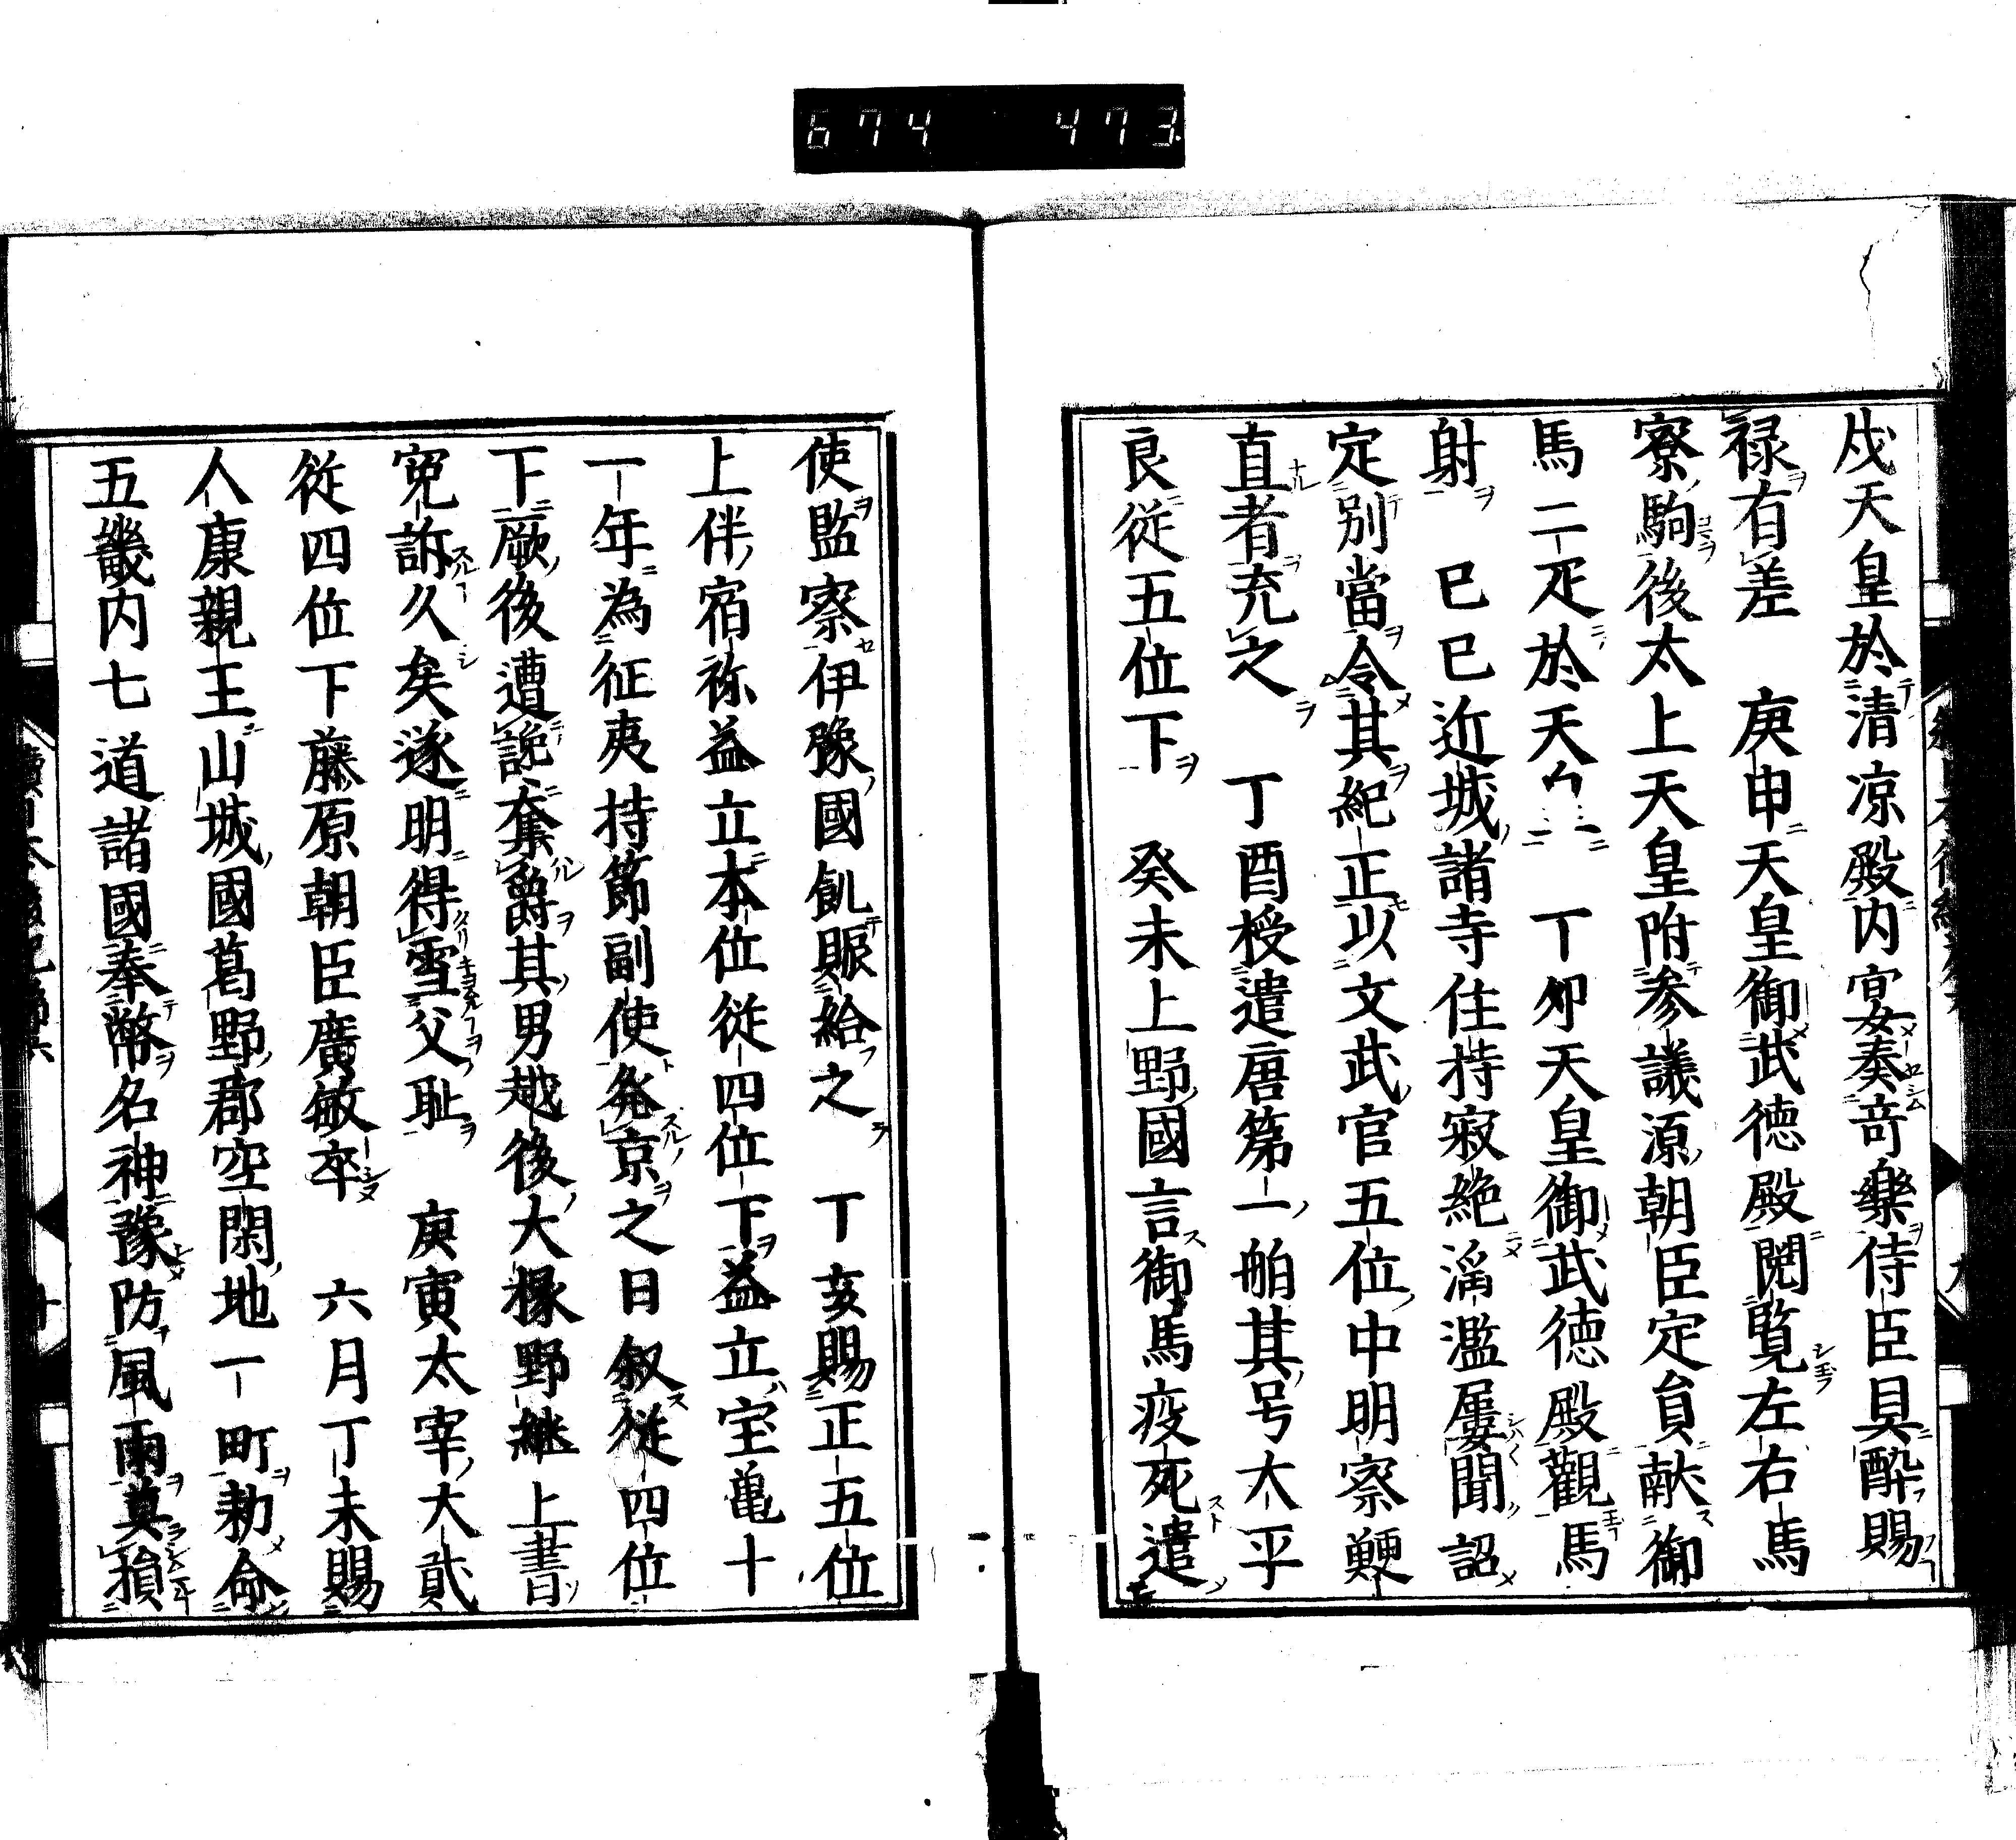 674 473
戍天皇於清凉殿内宴奏奇樂侍臣具酔賜
禄有差 庚申天皇御武徳殿閲覧左右馬
寮駒後太上天皇附参議源朝臣定貟献御
馬二疋於天 丁卯天皇御武徳殿觀馬
射 巳巳近城諸寺住持寂絶淄濫屢聞詔
定別當令其紀正以文武官五位中明察鯁
直者充之 丁酉授遣唐第一舶其号大平
良從五位下 癸未上野國言御馬疫死遣
使監察伊豫國飢賑給之 丁亥賜正五位
上伴宿祢益立本位從四位下益立宝亀十
一年為征夷持節副使発京之日叙從四位
下厥後遭讒奪爵其男越後大掾野継上書
寃訴久矣遂明得雪父耻 庚寅太宰大貳
從四位下藤原朝臣廣敏卒 六月丁未賜
人康親王山城國葛野郡空閑地一町勅命
五畿内七道諸國奉幣名神豫防風雨莫損